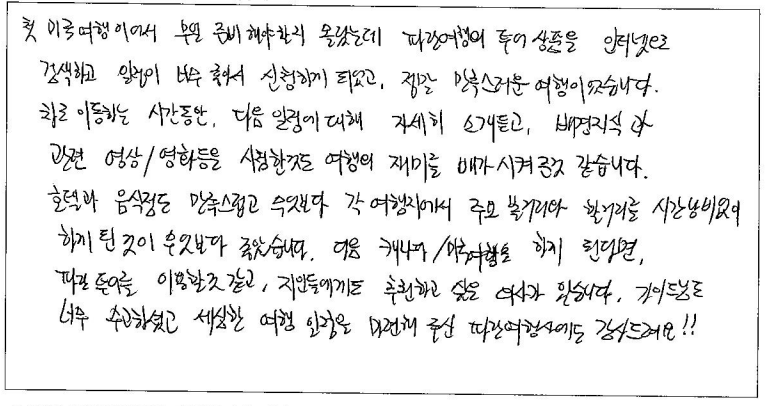 첫 미국여행이어서 무얼 준비해야할지 몰랐는데 파란여행의 투어 상품을 인터넷으로
검색하고 일정이 너무 좋아서 신청하게 되었고, 정말 만족스러운 여행이었습니다.
차로 이동하는 시간동안, 다음 일정에 대해 자세히 소개듣고, 배경지식과
관련 영상/영화등을 시청한것도 여행의 재미를 배가 시켜준것 같습니다.
호텔과 음식점도 만족스럽고 무엇보다 각 여행지에서 주요 볼거리와 할거리를 시간낭비없이
하게 된 것이 무엇보다 좋았습니다. 다음 캐나다/미국여행을 하게 된다면,
파란 투어를 이용할것 같고, 지인들에게도 추천하고 싶은 여행사가 됐습니다. 가이드님도
너무 수고하셨고 세심한 여행 일정을 마련해 주신 파란여행사에도 감사드려요!!